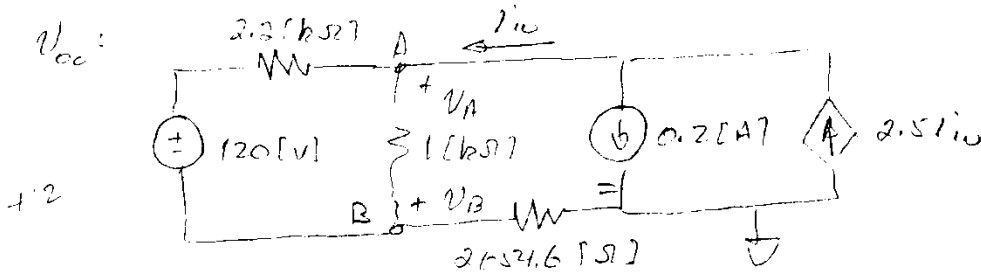 v_oc :
2.2[kΩ]
A
i_w
+
v_A
±
120[V]
1[kΩ]
0.2[A]
2.5 i_w
+2
B
+ v_B
=